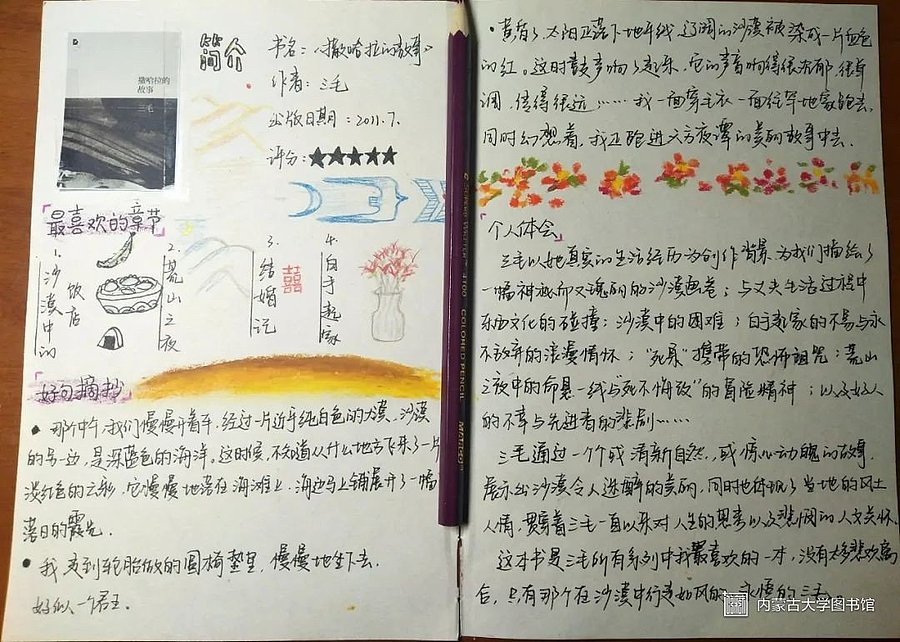 简介
书名:《撒哈拉的故事》
作者:三毛
出版日期:2011.7.
评分:★★★★★
撒哈拉的
故事
三毛
最喜欢的章节
1. 沙漠中的
饭店
2. 荒山之夜
3. 结婚记
囍
4. 白手起家
好句摘抄
• 那个中午,我们慢慢开着车,经过一片近乎纯白色的大漠,沙漠
的另一边,是深蓝色的海洋。这时候,不知道从什么地方飞来了一片
淡红色的云彩,它慢慢地落在海滩上,海边马上铺展开了一幅
落日的霞光。
• 我走到轮胎做的圆椅垫里,慢慢地坐下去.
好似一个君王.
• 黄昏了,太阳正落下地平线,辽阔的沙漠被染成一片血色
的红。这时鼓声响了起来,它的声音响得很沉郁,很单
调,传得很远……我一面穿毛衣一面往罕地家跑去,
同时幻想着,我正跑进天方夜谭的美丽故事中去.
个人体会
三毛以她真实的生活经历为创作背景,为我们描绘了
一幅神秘而又瑰丽的沙漠画卷;与丈夫生活过程中
东西文化的碰撞;沙漠中的困难;白手起家的不易与永
不放弃的浪漫情怀;"死果"携带的恐怖诅咒;荒山
之夜中的命悬一线与"死不悔改"的冒险精神;以及好人
的不幸与先进者的悲剧……
三毛通过一个个或清新自然,或惊心动魄的故事,
展示出沙漠令人迷醉的美丽,同时也体现了当地的风土
人情,贯穿着三毛一直以来对人生的思索以及悲悯的人文关怀.
这本书是三毛所有系列中我最喜欢的一本,没有太多悲欢离
合,只有那个在沙漠中行走如风的,永恒的三毛。
SUPERB WRITER 4100 COLORED PENCIL MARCO
内蒙古大学图书馆